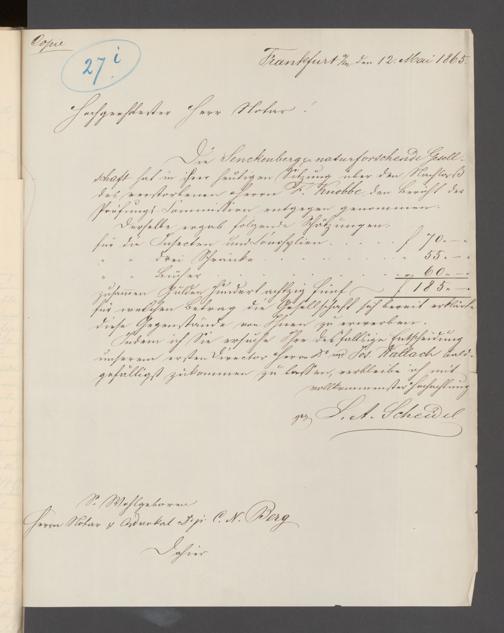 Copie
27 i
Frankfurt a/M den 12. Mai 1865
Hochgeehrtester Herr Notar!
Die Senckenberg. naturforschende Gesell-
schaft hat in ihrer heutigen Sitzung über den Nachlaß
des verstorbenen Herrn F. Knobbe den Bericht der
Prüfungs Commission entgegen genommen.
Derselbe ergab folgende Schätzungen:
für die Insecten und Conchylien . . . . f 70.—
" " drei Schränke . . . . . . " 55.—
" " Bücher . . . . . . " 60.—
zusammen Gulden Hundert achtzig fünf — f 185.—
für welchen Betrag die Gesellschaft sich bereit erklärt
diese Gegenstände von Ihnen zu erwerben.
Indem ich Sie ersuche Ihre desfallige Entscheidung
unserem ersten Director Herrn Dr. Jos Wallach bald-
gefälligst zukommen zu lassen, verbleibe ich mit
vollkommenster Hochachtung
S. A. Scheidel
Sr. Wohlgeboren
Herrn Notar & Advokat C. N. Berg
Dahier